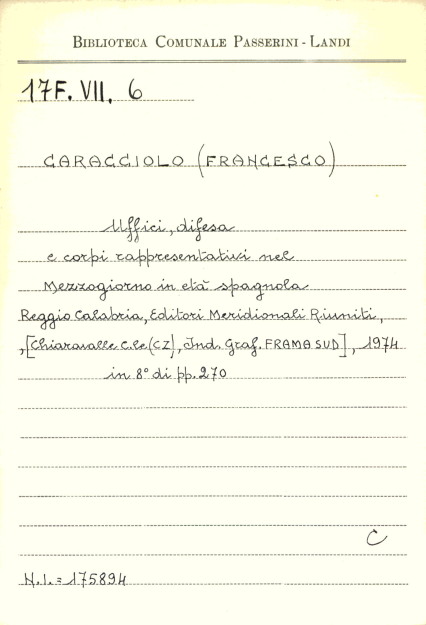 BIBLIOTECA COMUNALE PASSERINI - LANDI
17F. VII. 6
CARACCIOLO (FRANCESCO)
Uffici, difesa
e corpi rappresentativi nel
Mezzogiorno in età spagnola
Reggio Calabria, Editori Meridionali Riuniti,
,[Chiaravalle C.le (CZ), Ind. Graf. FRAMA SUD], 1974
in 8° di pp. 270
C
N.I. = 175894